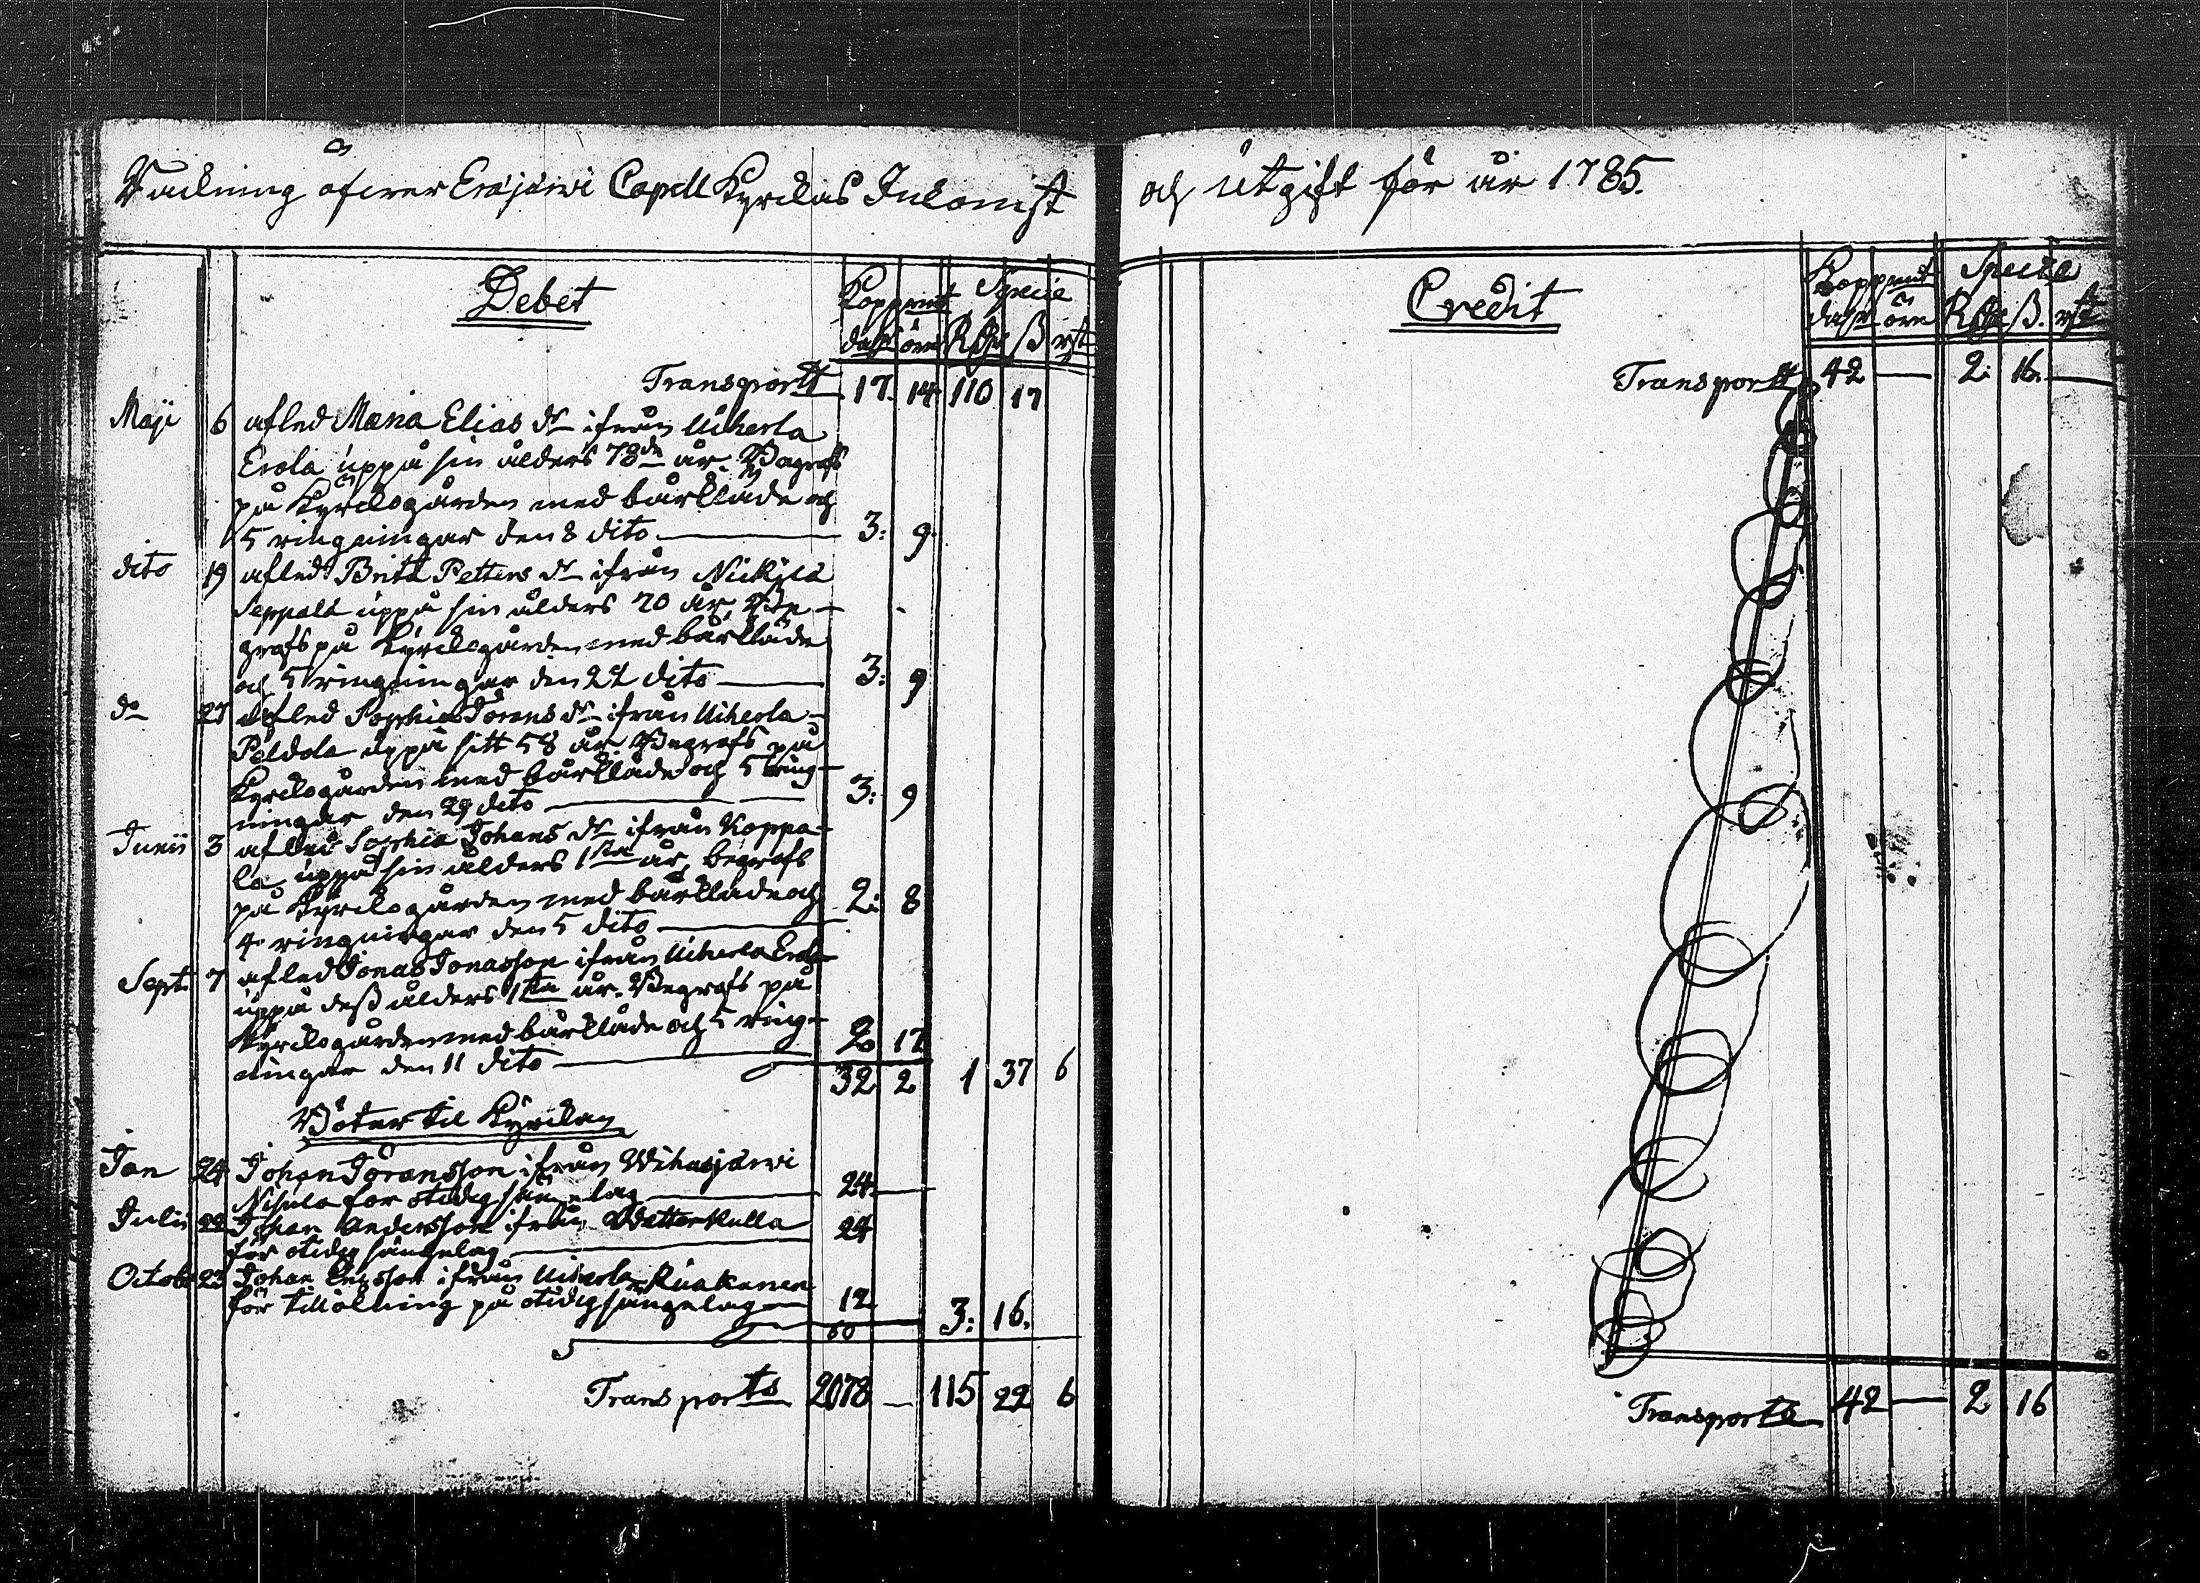 Räckning öfwer Eräjärwi Capell Kyrckas Inkomst och utgift för år 1785.
Debet
Kopparmt Specie
dahlr öre Rdlr ß rst
Transport 17 14 110 17
Maji 6 afled Maria Elias dr ifrån Uiherla
Erola uppå sin ålders 78de år. Begrofs
på Kyrckogården med bårkläde och
5 ringningar den 8 dito 3: 9
dito 19 afled Brita Petters dr ifrån
Seppälä uppå sin ålders 70 år, Be-
grofs på Kyrckogården med bårkläde
och 5 ringningar den 22 dito 3: 9
do 27 afled Sophia Jörens dr ifrån Uiherla
Peldola uppå sitt 58 år. Begrofs på
Kyrckogården med bårkläde och 5 ring-
ningar den 29 dito 3: 9
Junii 3 afled Sophia Johans dr ifrån Koppa-
la uppå sin ålders 1sta år, begrofs
på Kyrckogården med bårkläde och 2: 8
4 ringningar den 5 dito
Sept. 7 afled Jonas Jonasson ifrån Uiherla Erola
uppå deß ålders 1sta år. Begrofs på
Kyrckogården med bårkläde och 5 ring- 2 17
ningar den 11 dito
32 2 1 37 6
Böter til Kyrckan
Jan 24 Johan Jöransson ifrån Wihasjärwi
Nisula för otidig sängelag 24
Julii 22 Johan Andersson ifrån Wetterkulla 24
för otidig sängelag
Octob 23 Johan Ersson ifrån Uiherla Ruokonen
för tillökning på otidig sängelag 12
60 3: 16.
Transporte 2078 — 115 22 6
Credit
Kopparmt Specie
dahlr öre Rdlr ß. rst
Transport 42 — 2: 16. —
Transporte 42 — 2 16